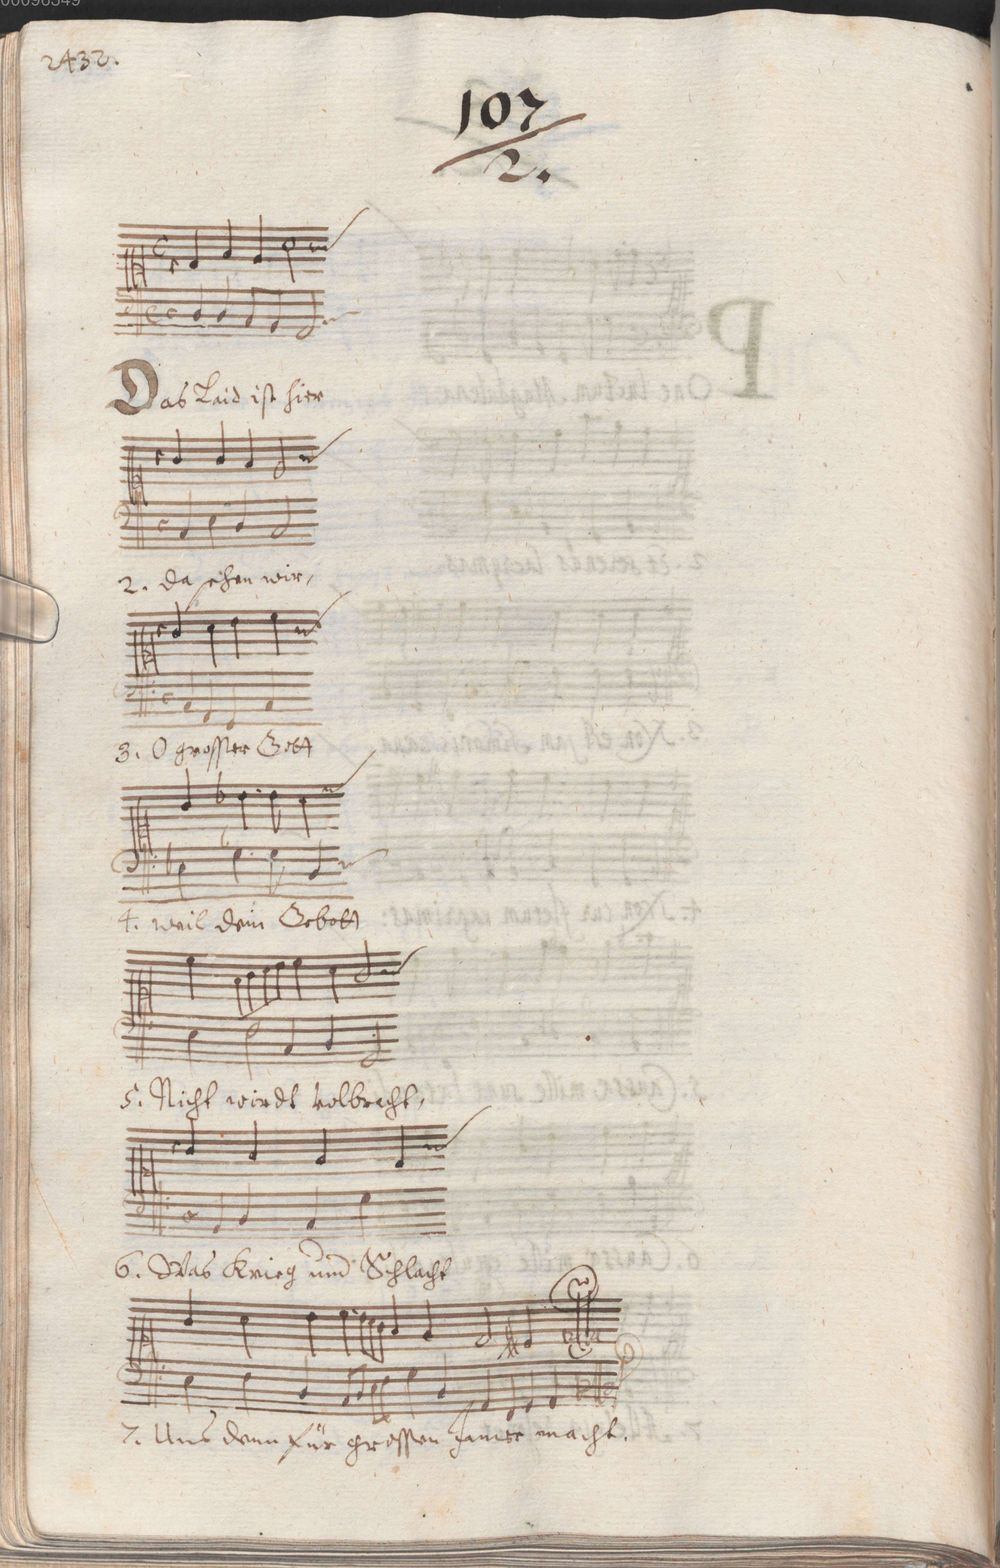 00096549
2432.
107
2.
Das Leid ist hier
2. da sehen wir,
3. O grosster Gott
4. weil dein Gebott
5. Nicht wirdt volbracht,
6. Was Krieg und Schlacht
7. Uns denn für grossen Jamer macht.